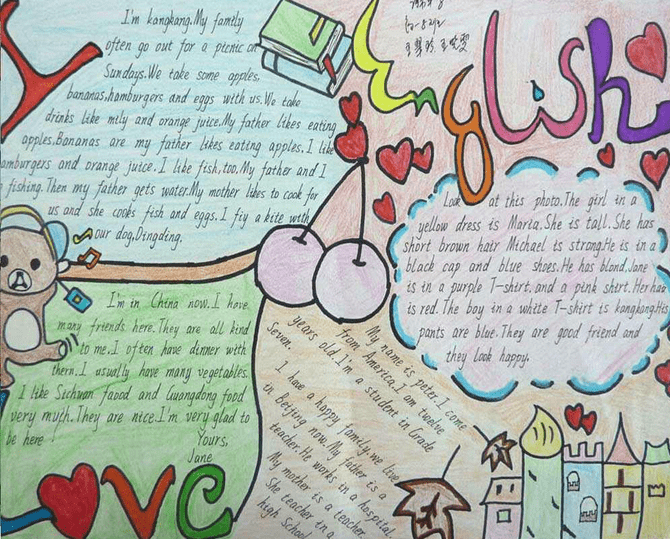 I'm kangkang.My family
often go out for a picnic on
Sundays.We take some apples,
bananas,hamburgers and eggs with us.We take
drinks like mily and orange juice.My father likes eating
apples.Bananas are my father likes eating apples.I like
hamburgers and orange juice.I like fish,too.My father and I
fishing.Then my father gets water.My mother likes to cook for
us and she cooks fish and eggs.I fiy a kite with
our dog,Dingding.
English
Look at this photo.The girl in a
yellow dress is Maria.She is tall.She has
short brown hair Michael is strong.He is in a
black cap and blue shoes.He has blond.Jane
is in a purple T-shirt.and a pink shirt.Her hair
is red.The boy in a white T-shirt is kangkong.His
pants are blue.They are good friend and
they look happy.
I'm in China now.I have
many friends here.They are all kind
to me.I often have dinner with
them.I usually have many vegetables.
I like Sichuan faood and Guangdong food
very much.They are nice.I'm very glad to
be here
Yours,
Jane
My name is peter.I come
from America.I am twelve
years old.I'm a student in Grade
Seven.
I have a happy family.we live
in Beijing now.My father is a
teacher.He works in a hospital.
My mother is a teocher
She teacher in a
high School
Love